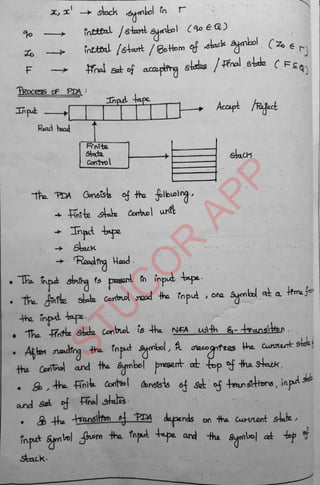 x, x' → stack symbol in Γ
q0 → initial / start symbol (q0 ∈ Q)
z0 → initial / start / Bottom of stack symbol (z0 ∈ Γ)
F → Final set of accepting states / Final state (F ⊆ Q)
PROCESS OF PDA :
Input tape
Input → Accept / Reject
Read head
Finite
State
Control
stack
The PDA Consists of the following,
→ Finite state Control unit
→ Input tape
→ Stack
→ Reading Head.
• The input string is present in input tape.
• The finite state control read the input, one symbol at a time from
the input tape.
• The Finite State Control is the NFA with ε-transition.
• After reading the input symbol, it recognizes the current state of
the control and the symbol present at top of the stack.
• So, the Finite Control Consists of set of transitions, input state
and set of Final states.
• So the transition of PDA depends on the current state,
input symbol from the input tape and the symbol at top of
stack.
STUCOR APP